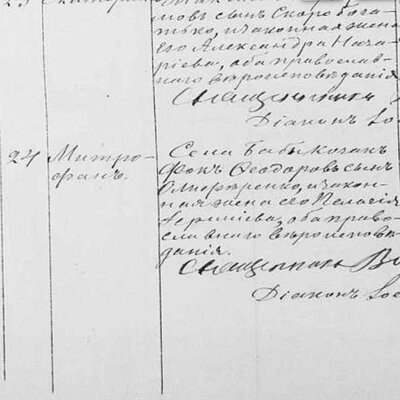 мовъ сынъ Скоробога-
тько, и законная жена
его Александра Naзa-
ріева, оба православ-
наго вѣроисповѣданія.
Священникъ
Діаконъ Іос
24 Митро-
фанъ.
Села Бабы козакъ
Фока Ѳеодоровъ сынъ
и закон-
ная жена его Пелагія
Іереміева, оба право-
славнаго вѣроисповѣ-
данія.
Священникъ
Діаконъ Іос